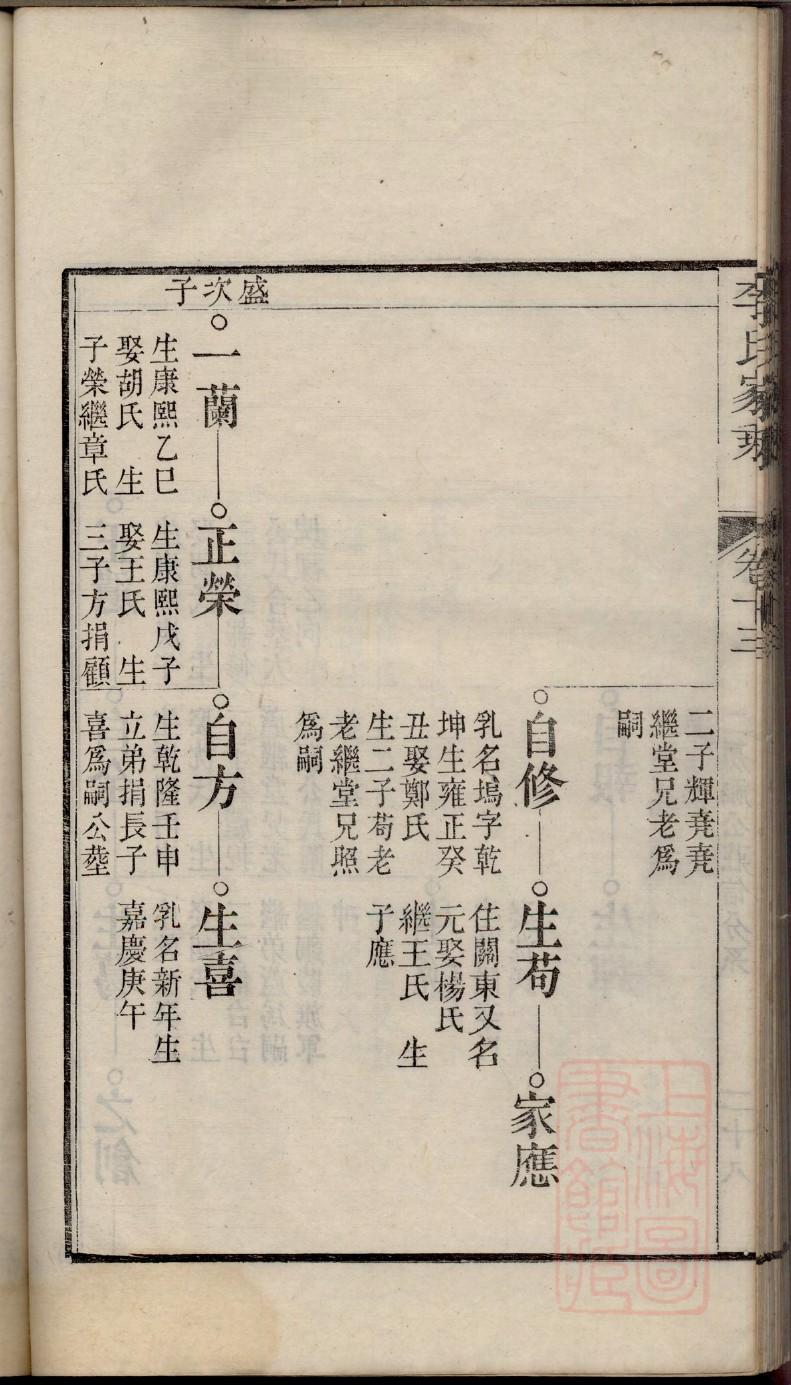 李氏家乘
卷十三
二子輝堯堯
繼堂兄老爲
嗣
自修
乳名塢字乾
坤生雍正癸
丑娶鄭氏
生二子苟老
老繼堂兄照
爲嗣
生苟
住關東又名
元娶楊氏
繼王氏 生
子應
家應
盛次子
一蘭
生康熙乙巳
娶胡氏 生
子榮繼章氏
正榮
生康熙戊子
娶王氏 生
三子方捐顧
自方
生乾隆壬申
立弟捐長子
喜爲嗣公塟
生喜
乳名新年生
嘉慶庚午
上海圖
書館藏